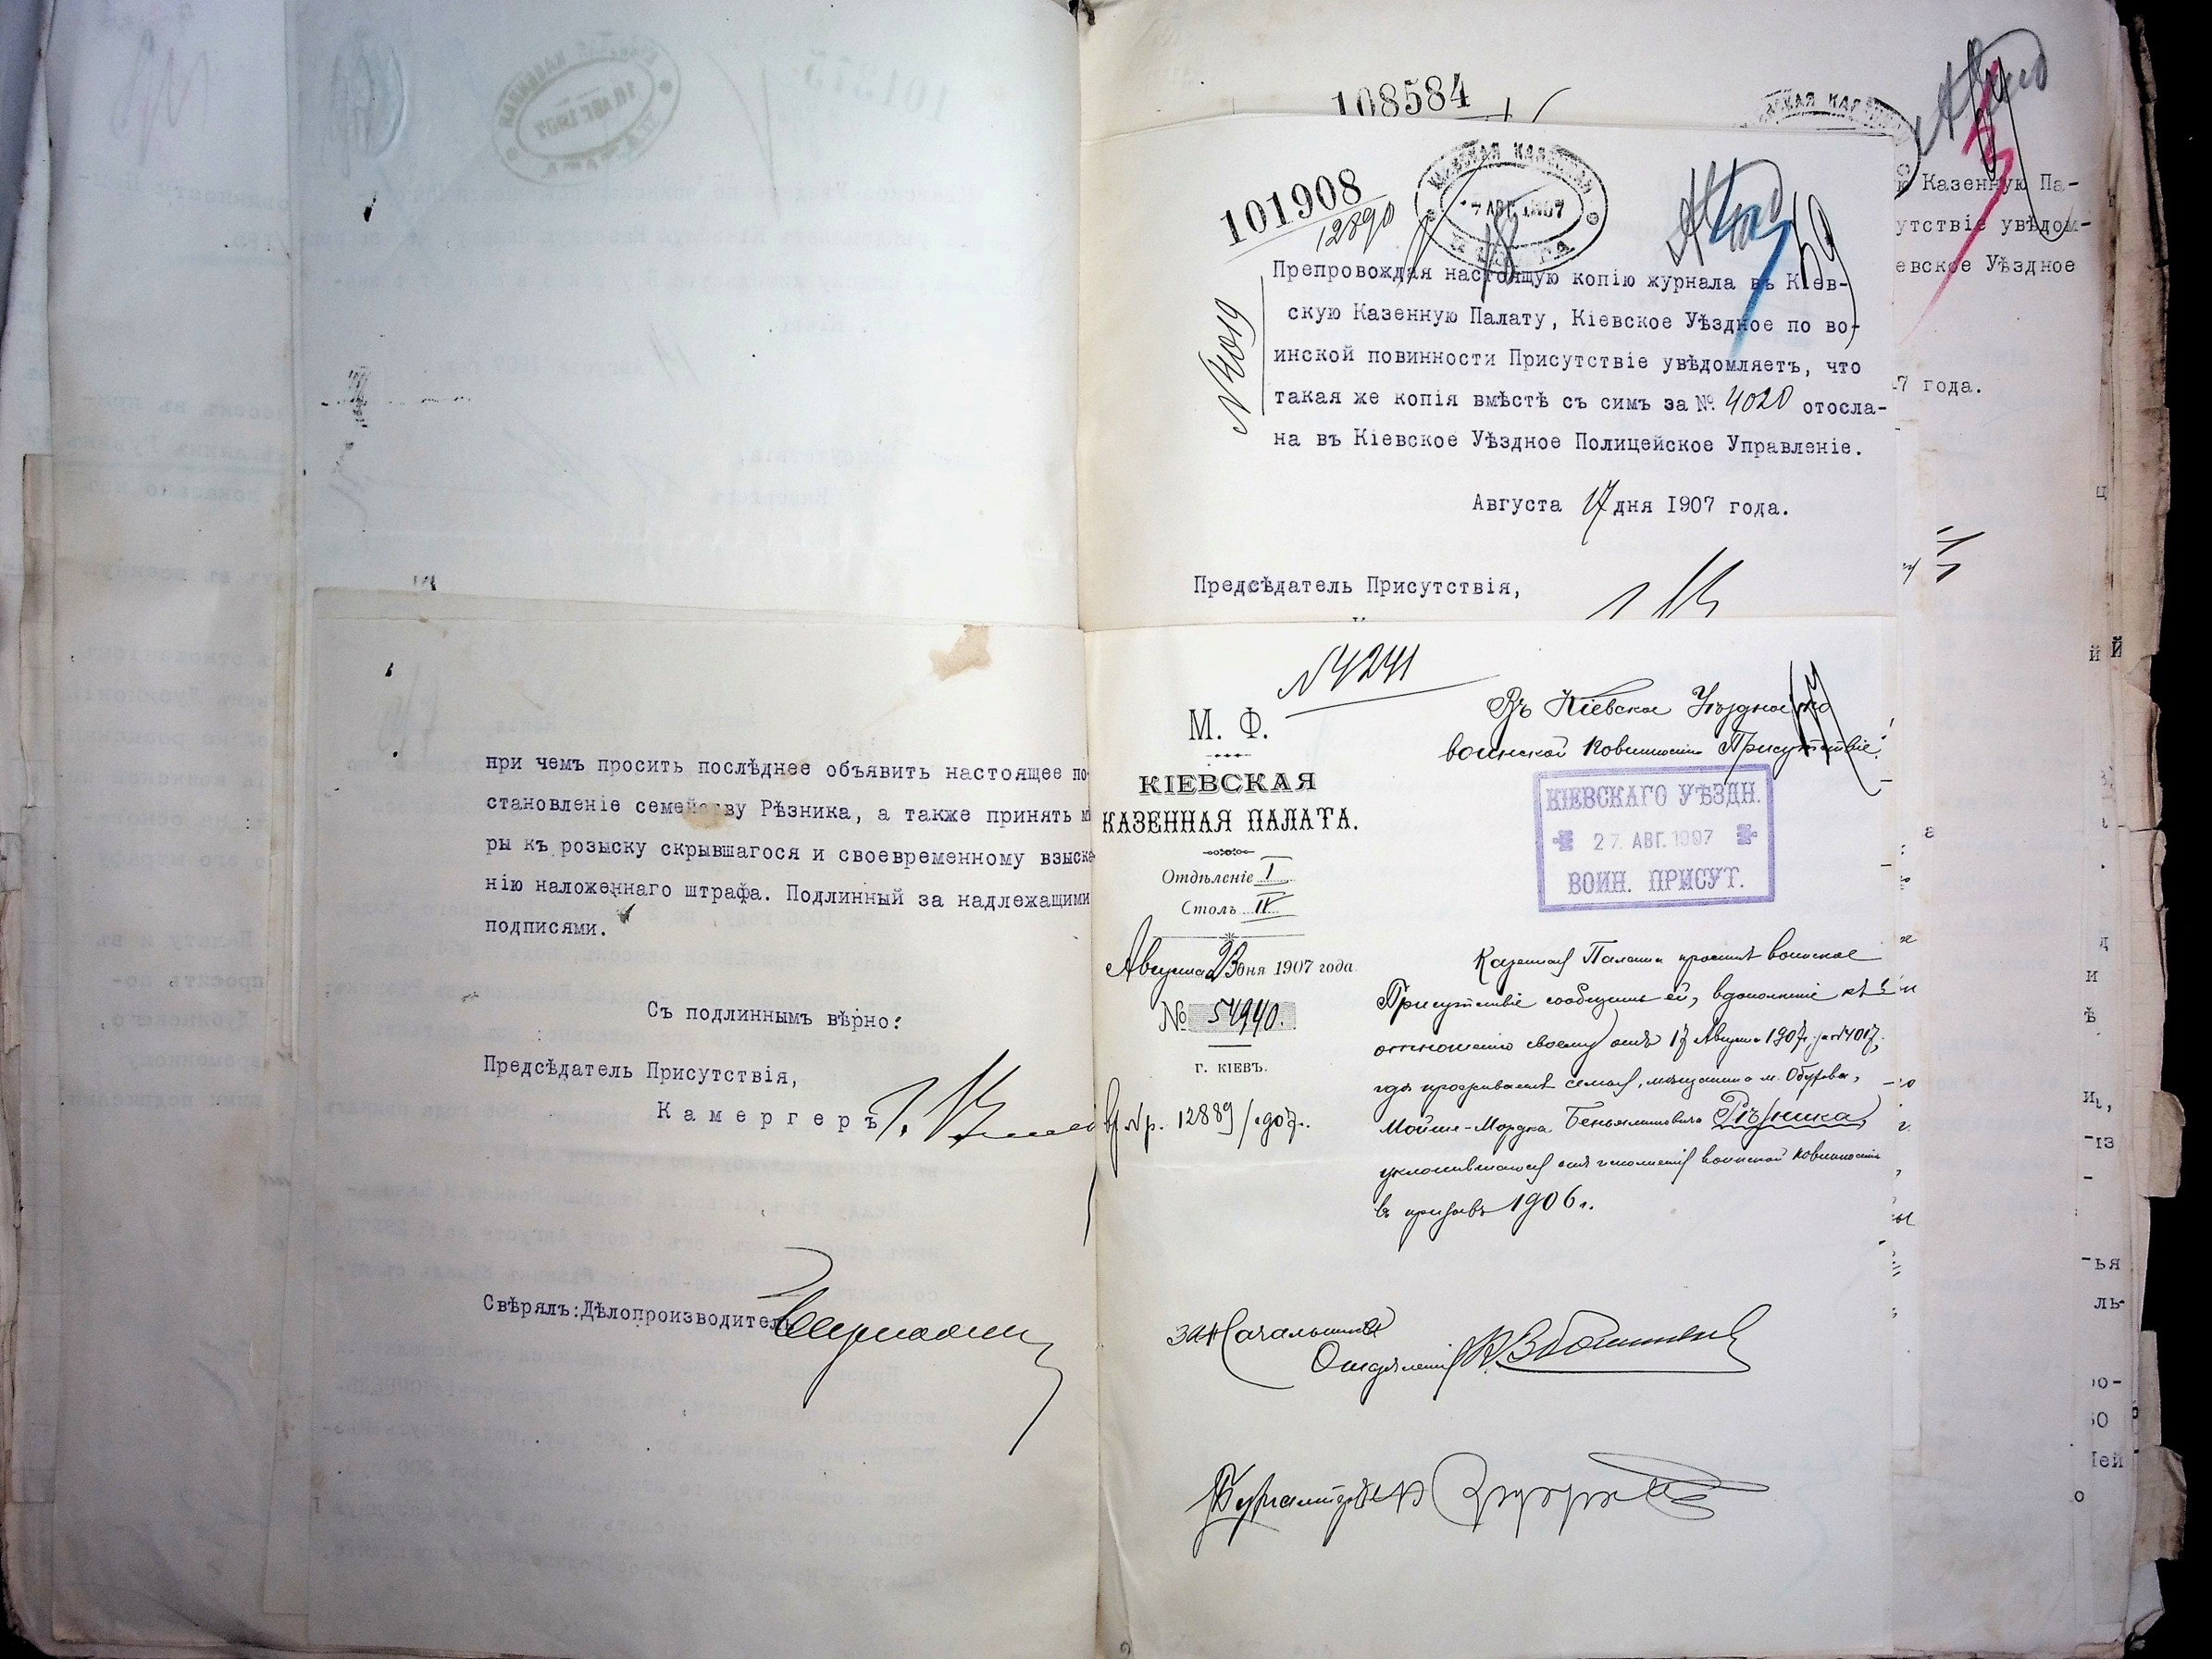 при чемъ просить послѣднее объявить настоящее по-
становленіе семейству Рѣзника, а также принять мѣ
ры къ розыску скрывшагося и своевременному взыска
нію наложеннаго штрафа. Подлинный за надлежащими
подписями.
Съ подлиннымъ вѣрно:
Предсѣдатель Присутствія,
Камергеръ
Свѣрялъ: Дѣлопроизводитель
108584
101908
12890
КІЕВСКАЯ КАЗЕННАЯ
17 АВГ. 1907
ПАЛАТА
№ 4019
Препровождая настоящую копію журнала въ Кіев-
скую Казенную Палату, Кіевское Уѣздное по во-
инской повинности Присутствіе увѣдомляетъ, что
такая же копія вмѣстѣ съ симъ за № 4020 отосла-
на въ Кіевское Уѣздное Полицейское Управленіе.
Августа 17 дня 1907 года.
Предсѣдатель Присутствія,
Казенную Па-
утствіе увѣдом-
евское Уѣздное
7 года.
№ 4241
М. Ф.
КІЕВСКАЯ
КАЗЕННАЯ ПАЛАТА.
Отдѣленіе I
Столъ IV
Августа 23 дня 1907 года
№ 54940.
Г. КІЕВЪ.
12889/1907г.
Въ Кіевское Уѣздное по
воинской повинности Присутствіе.
КІЕВСКАГО УѢЗДН.
27. АВГ. 1907
ВОИН. ПРИСУТ.
Казенная Палата проситъ воинское
Присутствіе сообщить ей, въ дополненіе къ
отношенію своему отъ 17 Августа 1907 г. за № 4017,
гдѣ проживаетъ семья, мѣщанина м. Обухова,
Мойше-Мордка Беньяминовича Рѣзника,
уклонившагося отъ исполненія воинской повинности
въ призывъ 1906 г.
За Начальника
Отдѣленія